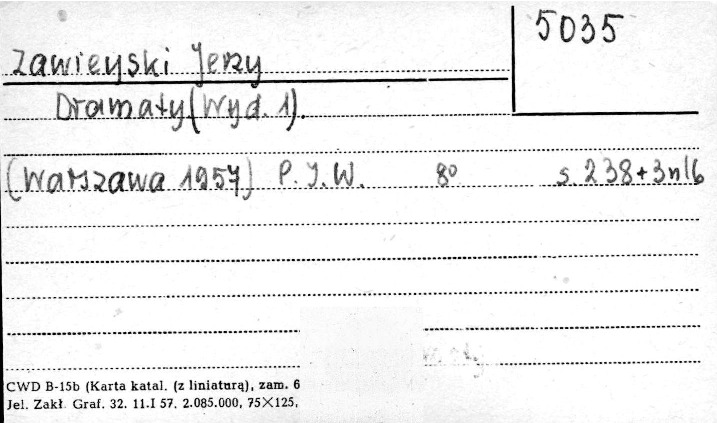 5035
Zawieyski Jerzy
Dramaty (Wyd. 1).
(Warszawa 1957) P. I. W. 8° s. 238+3nlb
CWD B-15b (Karta katal. (z liniaturą), zam. 6
Jel. Zakł. Graf. 32. 11.I 57. 2.085.000, 75×125,